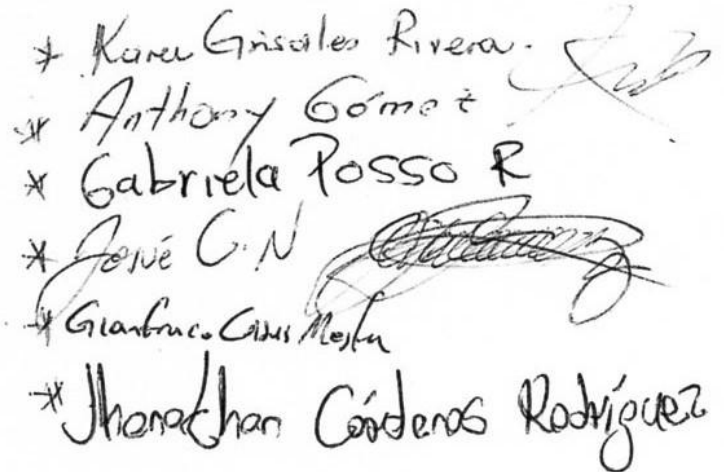 * Karen Grisales Rivera.
* Anthony Gómez
* Gabriela Posso R
* Josué C.N
* Gianfranco
* Jhonathan Cárdenas Rodríguez